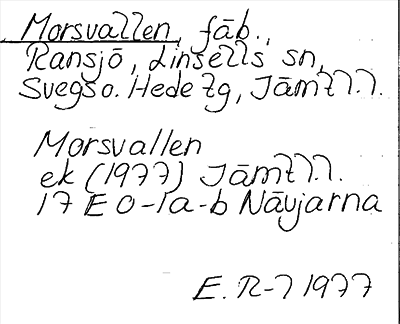 Morsvallen, fäb.,
Ransjö, Linsells sn,
Svegs o. Hede tg, Jämtl.l.
Morsvallen
ek (1977) Jämtl.l.
17 E 0-1a-b Nävjarna
E. R-l 1977